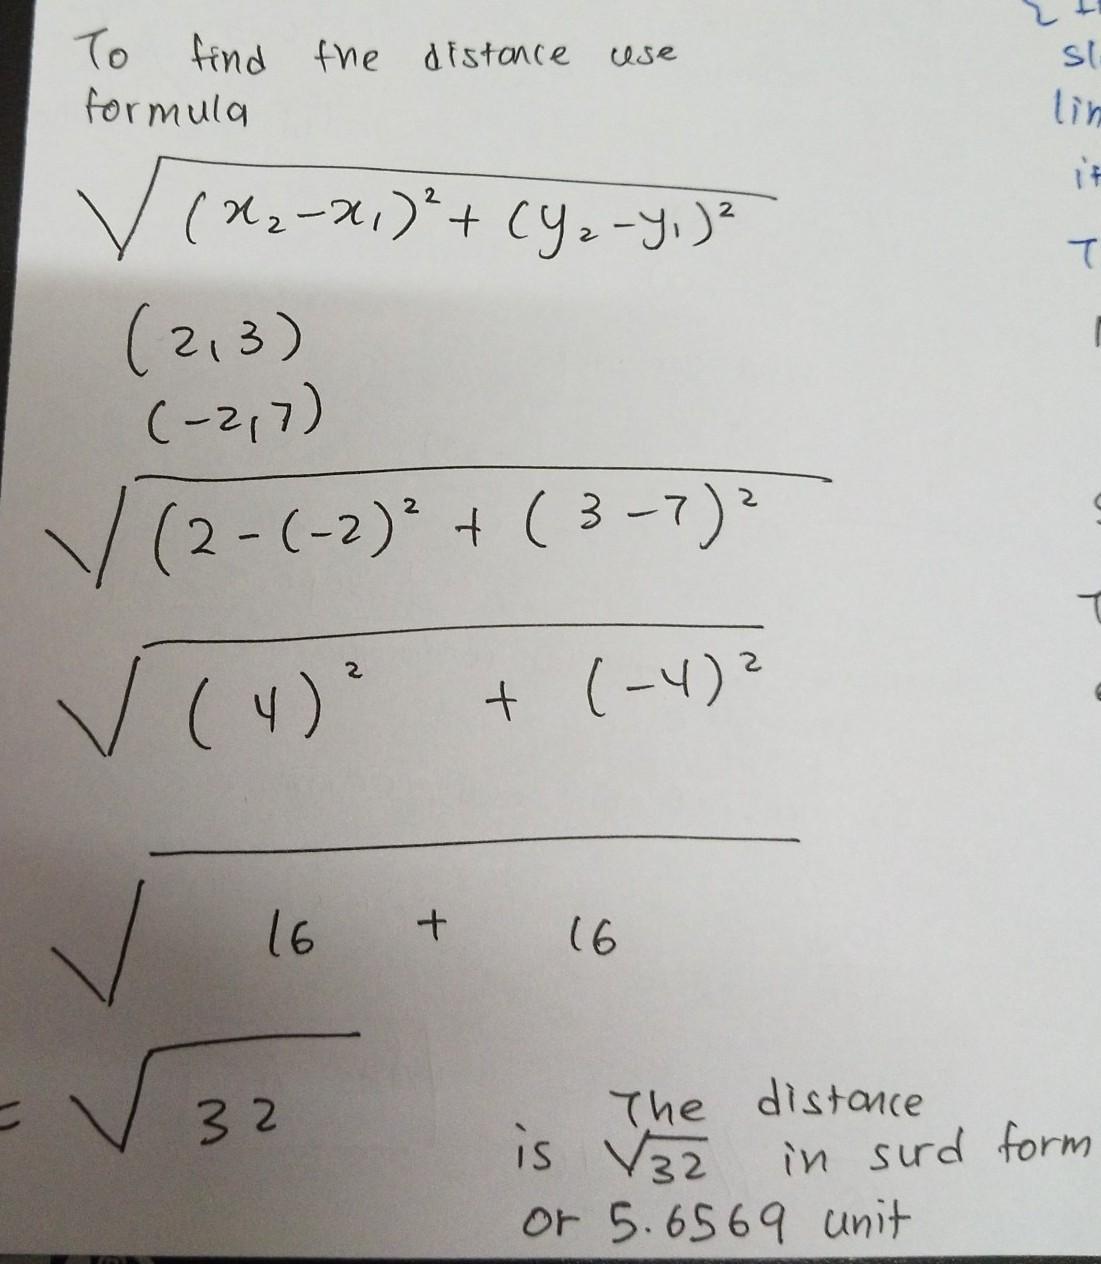 To find the distance use
formula
√(x₂-x₁)² + (y₂-y₁)²
(2,3)
(-2,7)
√(2-(-2)² + (3-7)²
√(4)² + (-4)²
√16 + 16
= √32
The distance
is √32 in surd form
or 5.6569 unit
sl
lin
it
T